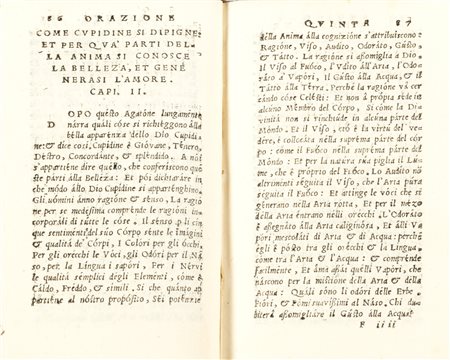 86 ORAZIONE
COME CVPIDINE SI DIPIGNE
ET PER QVA' PARTI DEL-
LA ANIMA SI CONOSCE
LA BELLEZA, ET GENE
NERASI L'AMORE.
CAPI. II.
DOPO questo Agatóne lungamente
nárra quáli cóse si richieggono álla
bélla apparénza dello Dio Cupídine:
& dice così, Cupídine è Gióvane, Ténero,
Déstro, Concordánte, & spléndido. A nói
s'appartiéne dire quéllo, che conferíscono qué
ste párti álla Belléza: Et pói dichiaráre in
che módo állo Dio Cupídine si appartenghino.
Gli uómini ánno ragióne & sénso, La ragióne
per se medésima comprénde le ragióni in-
corporáli di tútte le cóse. Il sénso p li cín
que sentiménti del súo Córpo sénte le imágini
& qualità de' Córpi, i Colóri per gli ócchi.
Per gli orécchi le Vóci, gli Odóri per il Ná-
so, per la Língua i sapóri. Per i Nérvi
le qualità sémplici degli Eleménti, cóme è
Cáldo, Fréddo, & símili. Sì che quánto ap-
partiéne al nóstro propósito, Séi poténzie
QVINTA 87
délla Anima álla cognizióne s'attribuíscono:
Ragióne, Víso, Audíto, Odoráto, Gústo
& Tátto. La ragióne si assomíglia a Dío.
Il Víso al Fuóco, l'Audíto álla Aria, l'Odo-
ráto a' Vapóri, Il Gústo álla Acqua, & il
Tátto álla Térra. Perchè la ragióne và cer-
cándo cóse Celésti: Et non à própria séde in
alcúno Mémbro del Córpo, Sì cóme la Diui-
nità non à determináta séde in alcúna párte del
Móndo. Et il Víso, ciò è la virtù del ve-
dére, è collocáta nélla supréma párte del cór-
po: cóme il Fuóco nélla supréma párte del
Móndo: Et per la natúra súa píglia il Lú-
me, che è próprio del Fuóco. Lo Audíto nó
altriménti séguita il Víso, che l'Aria púra
séguita il Fuóco: Et attínge le vóci che si
génerano nélla Aria rótta, Et per il mézo
della Aria éntrano nélli orécchi. L'Odoráto
è assegnáto álla Aria caliginósa, & álli Va
póri mescoláti di Aria & di Acqua: perchè
égli è pósto tra gli orécchi & la língua:
cóme tra l'Aria & l'Acqua: & comprénde
facilménte, Et áma assái quélli Vapóri, che
náscono per la mistióne délla Aria & délla
Acqua: Quáli sóno li odóri délle Erbe
Fióri, & Pómi suavíssimi al Náso. Chi du-
biterà assomigliáre il Gústo álla Acqua?
F iiii